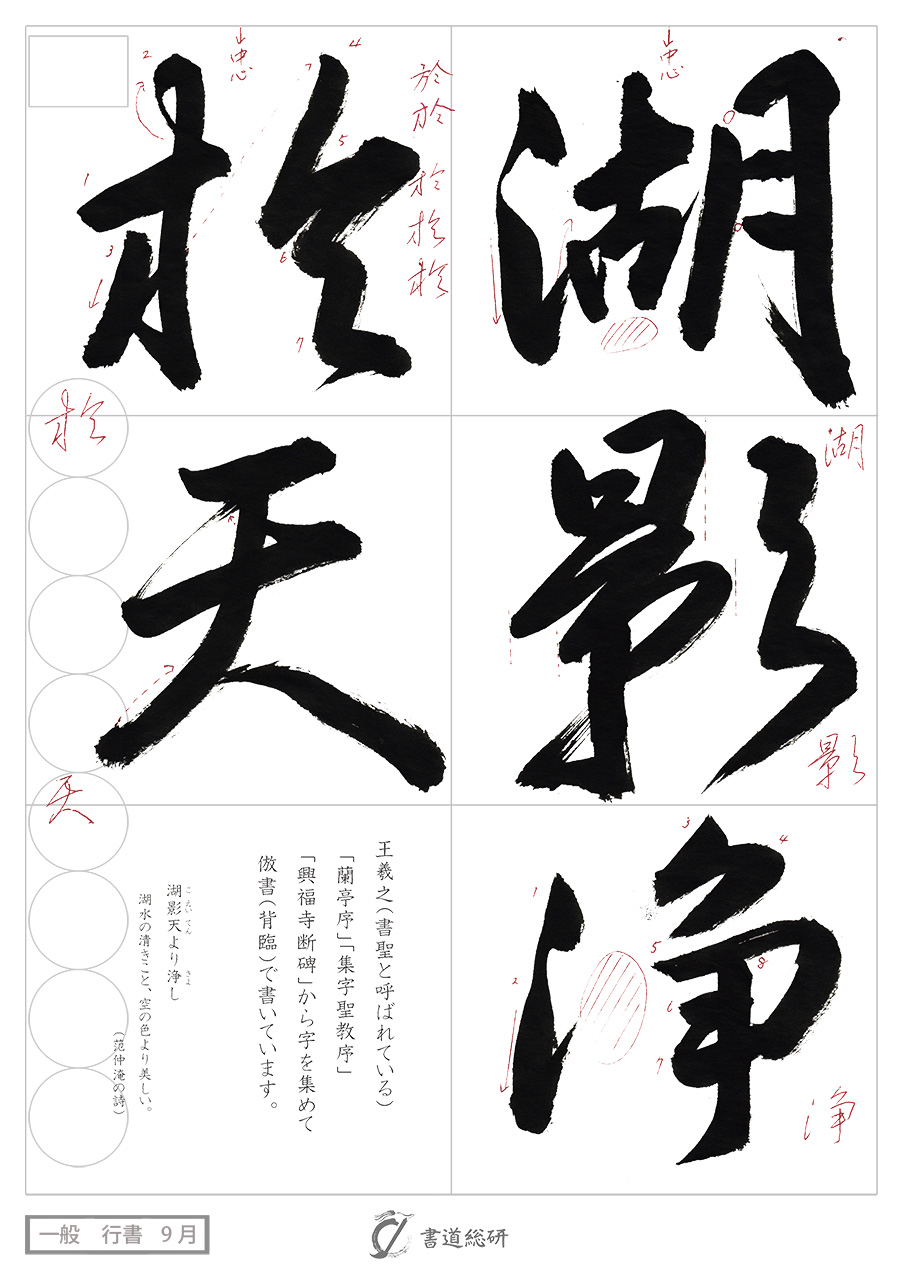 湖影浄
於天
忠
忠
於
於
於
於
於
湖
影
浄
於
天
1
2
3
4
5
6
7
7
1
2
3
4
5
6
7
8
王羲之(書聖と呼ばれている)
「蘭亭序」「集字聖教序」
「興福寺断碑」から字を集めて
倣書(背臨)で書いています。
こえいてん きよ
湖影天より浄し
湖水の清きこと、空の色より美しい。
(范仲淹の詩)
一般 行書 9月
書道総研